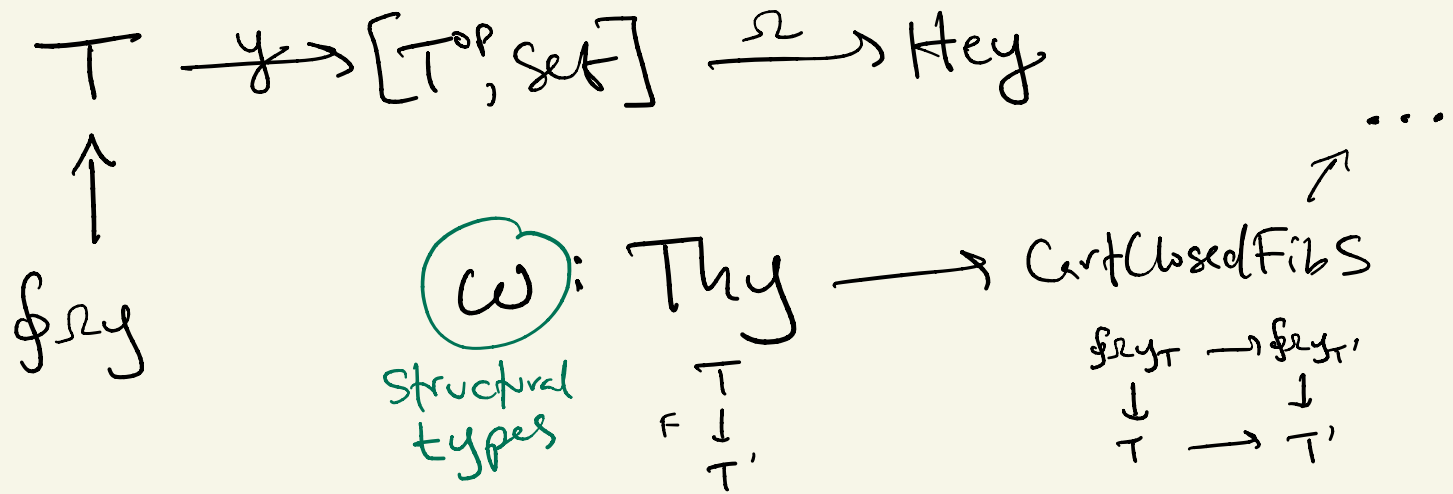 T y→ [Tᵒᵖ, Set] Ω→ Hey
↑ ...
∮Ωy ω: Thy → CartClosedFibS
structural types
T ∮Ωy_T → ∮Ωy_T'
F ↓ ↓ ↓
T' T → T'